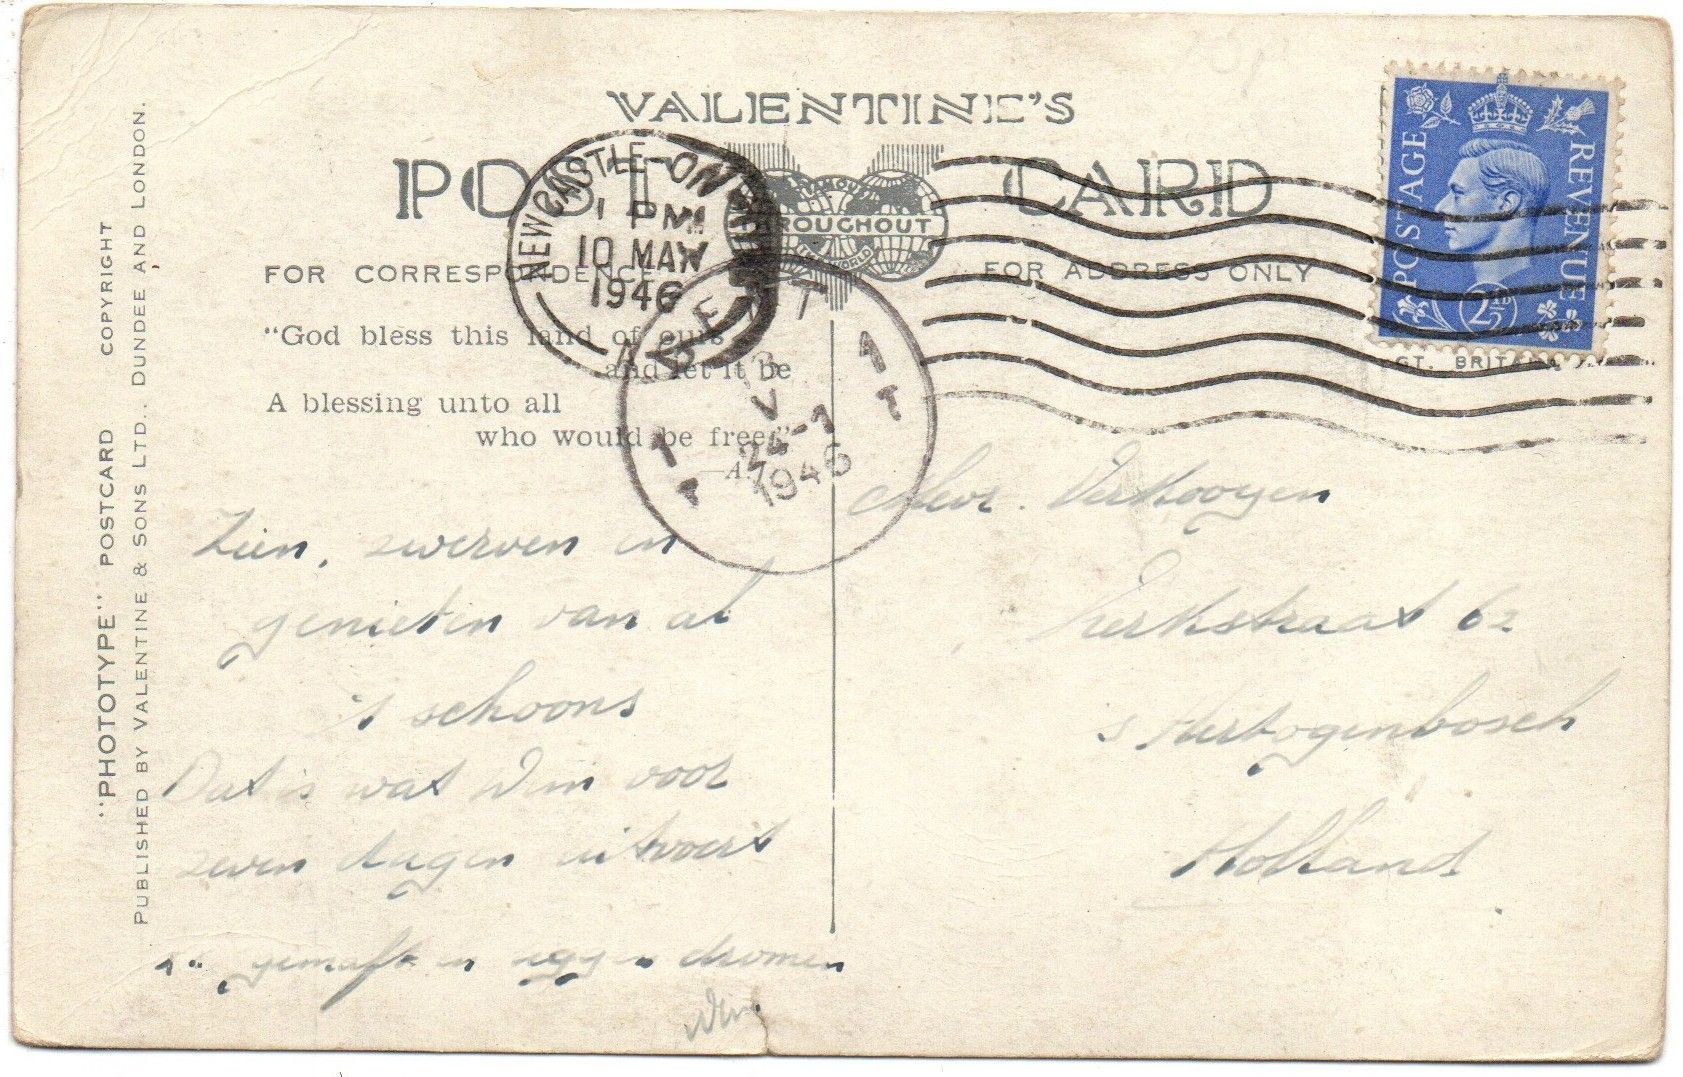 VALENTINE'S
POST CARD
NEWCASTLE-ON
1 PM
10 MAY
1946
THROUGHOUT
WORLD
FOR CORRESPONDENCE
FOR ADDRESS ONLY
POSTAGE
REVENUE
2½D
GT. BRITAIN
"God bless this land of ours
and let it be
A blessing unto all
who would be free."
24-7
1946
"PHOTOTYPE" POSTCARD COPYRIGHT
PUBLISHED BY VALENTINE & SONS LTD., DUNDEE AND LONDON.
Zien, zwerven en
genieten van al
't schoons
Dat is wat Wim voor
zeven dagen uitvoert
dromen
Wim
Mevr. Verkooyen
Kerkstraat 62
's Hertogenbosch
Holland